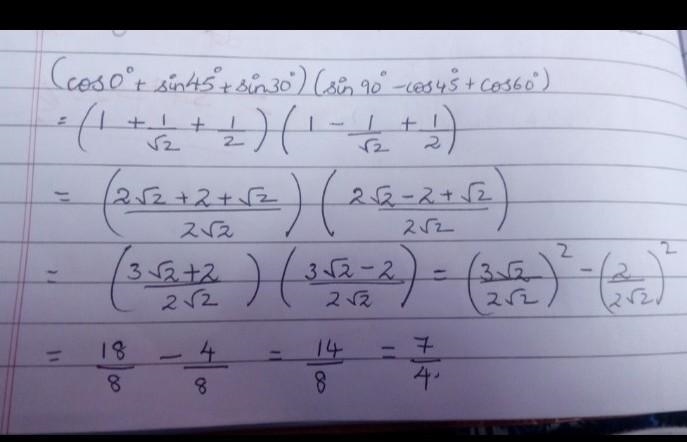 (cos0° + sin45° + sin30°) (sin 90° - cos45° + cos60°)
= (1 + 1/√2 + 1/2) (1 - 1/√2 + 1/2)
= ((2√2 + 2 + √2)/(2√2)) ((2√2 - 2 + √2)/(2√2))
= ((3√2 + 2)/(2√2)) ((3√2 - 2)/(2√2)) = (3√2/(2√2))² - (2/(2√2))²
= 18/8 - 4/8 = 14/8 = 7/4.